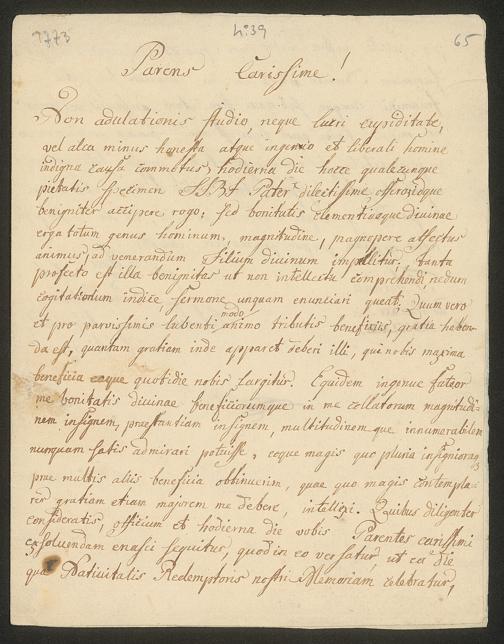 1773
N: 39
65
Parens Carissime!
Non adulationis studio, neque lucri cupiditate,
vel alia minus honesta atque ingenuo et liberali homine
indigna causa commotus, hodierna die hocce qualecunque
pietatis specimen Tibi Pater dilectissime offero, idque
benigniter accipere rogo; sed bonitatis clementiaeque divinae
erga totum genus hominum, magnitudine, magnopere affectus
animus, ad venerandum Filium divinum impellitur. tanta
profecto est illa benignitas ut non intellectu comprehendi nedum
cogitationum indice sermone unquam enunciari queat. Quum vero
et pro parvissimis lubenti modo animo tributis beneficiis, gratia haben-
da est, quantam gratiam inde apparet deberi illi, qui nobis maxima
beneficia eaque quotidie nobis largitur. Equidem ingenue fateor
me bonitatis divinae beneficiorumque in me collatorum magnitudi-
nem insignem, praestantiam insignem, multitudinemque innumerabilem
nunquam satis admirari potuisse, eoque magis quo plura insignioraq3
prae multis aliis beneficia obtinuerim, quae quo magis contempla-
rer gratiam etiam majorem me debere, intellexi. Quibus diligenter
consideratis, officium et hodierna die vobis Parentes carissimi
exsolvendam enasci sequitur, quod in eo versatur, ut ea die
qua Nativitatis Redemptoris nostri Memoriam celebratur,